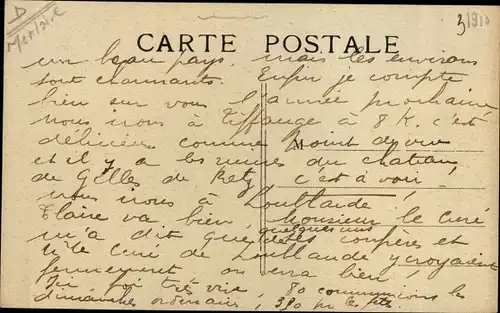 D
Morlaix
3 1910
CARTE POSTALE
un beau pays, mais les environs
sont charmants. Enfin je compte
bien sur vous l'année prochaine
nous irons à Tiffauge à 8 K. c'est
délicieux comme point de vue
M
et il y a les ruines du chateau
de Gilles de Retz, c'est à voir,
nous irons à Loublande,
Claire va bien, Monsieur le curé
m'a dit que quelques uns de ses confrères et
le curé de Loublande y croyaient
fermement on verra bien,
foi très vive, 80 communions les
dimanches ordinaires, 350 les fêtes.